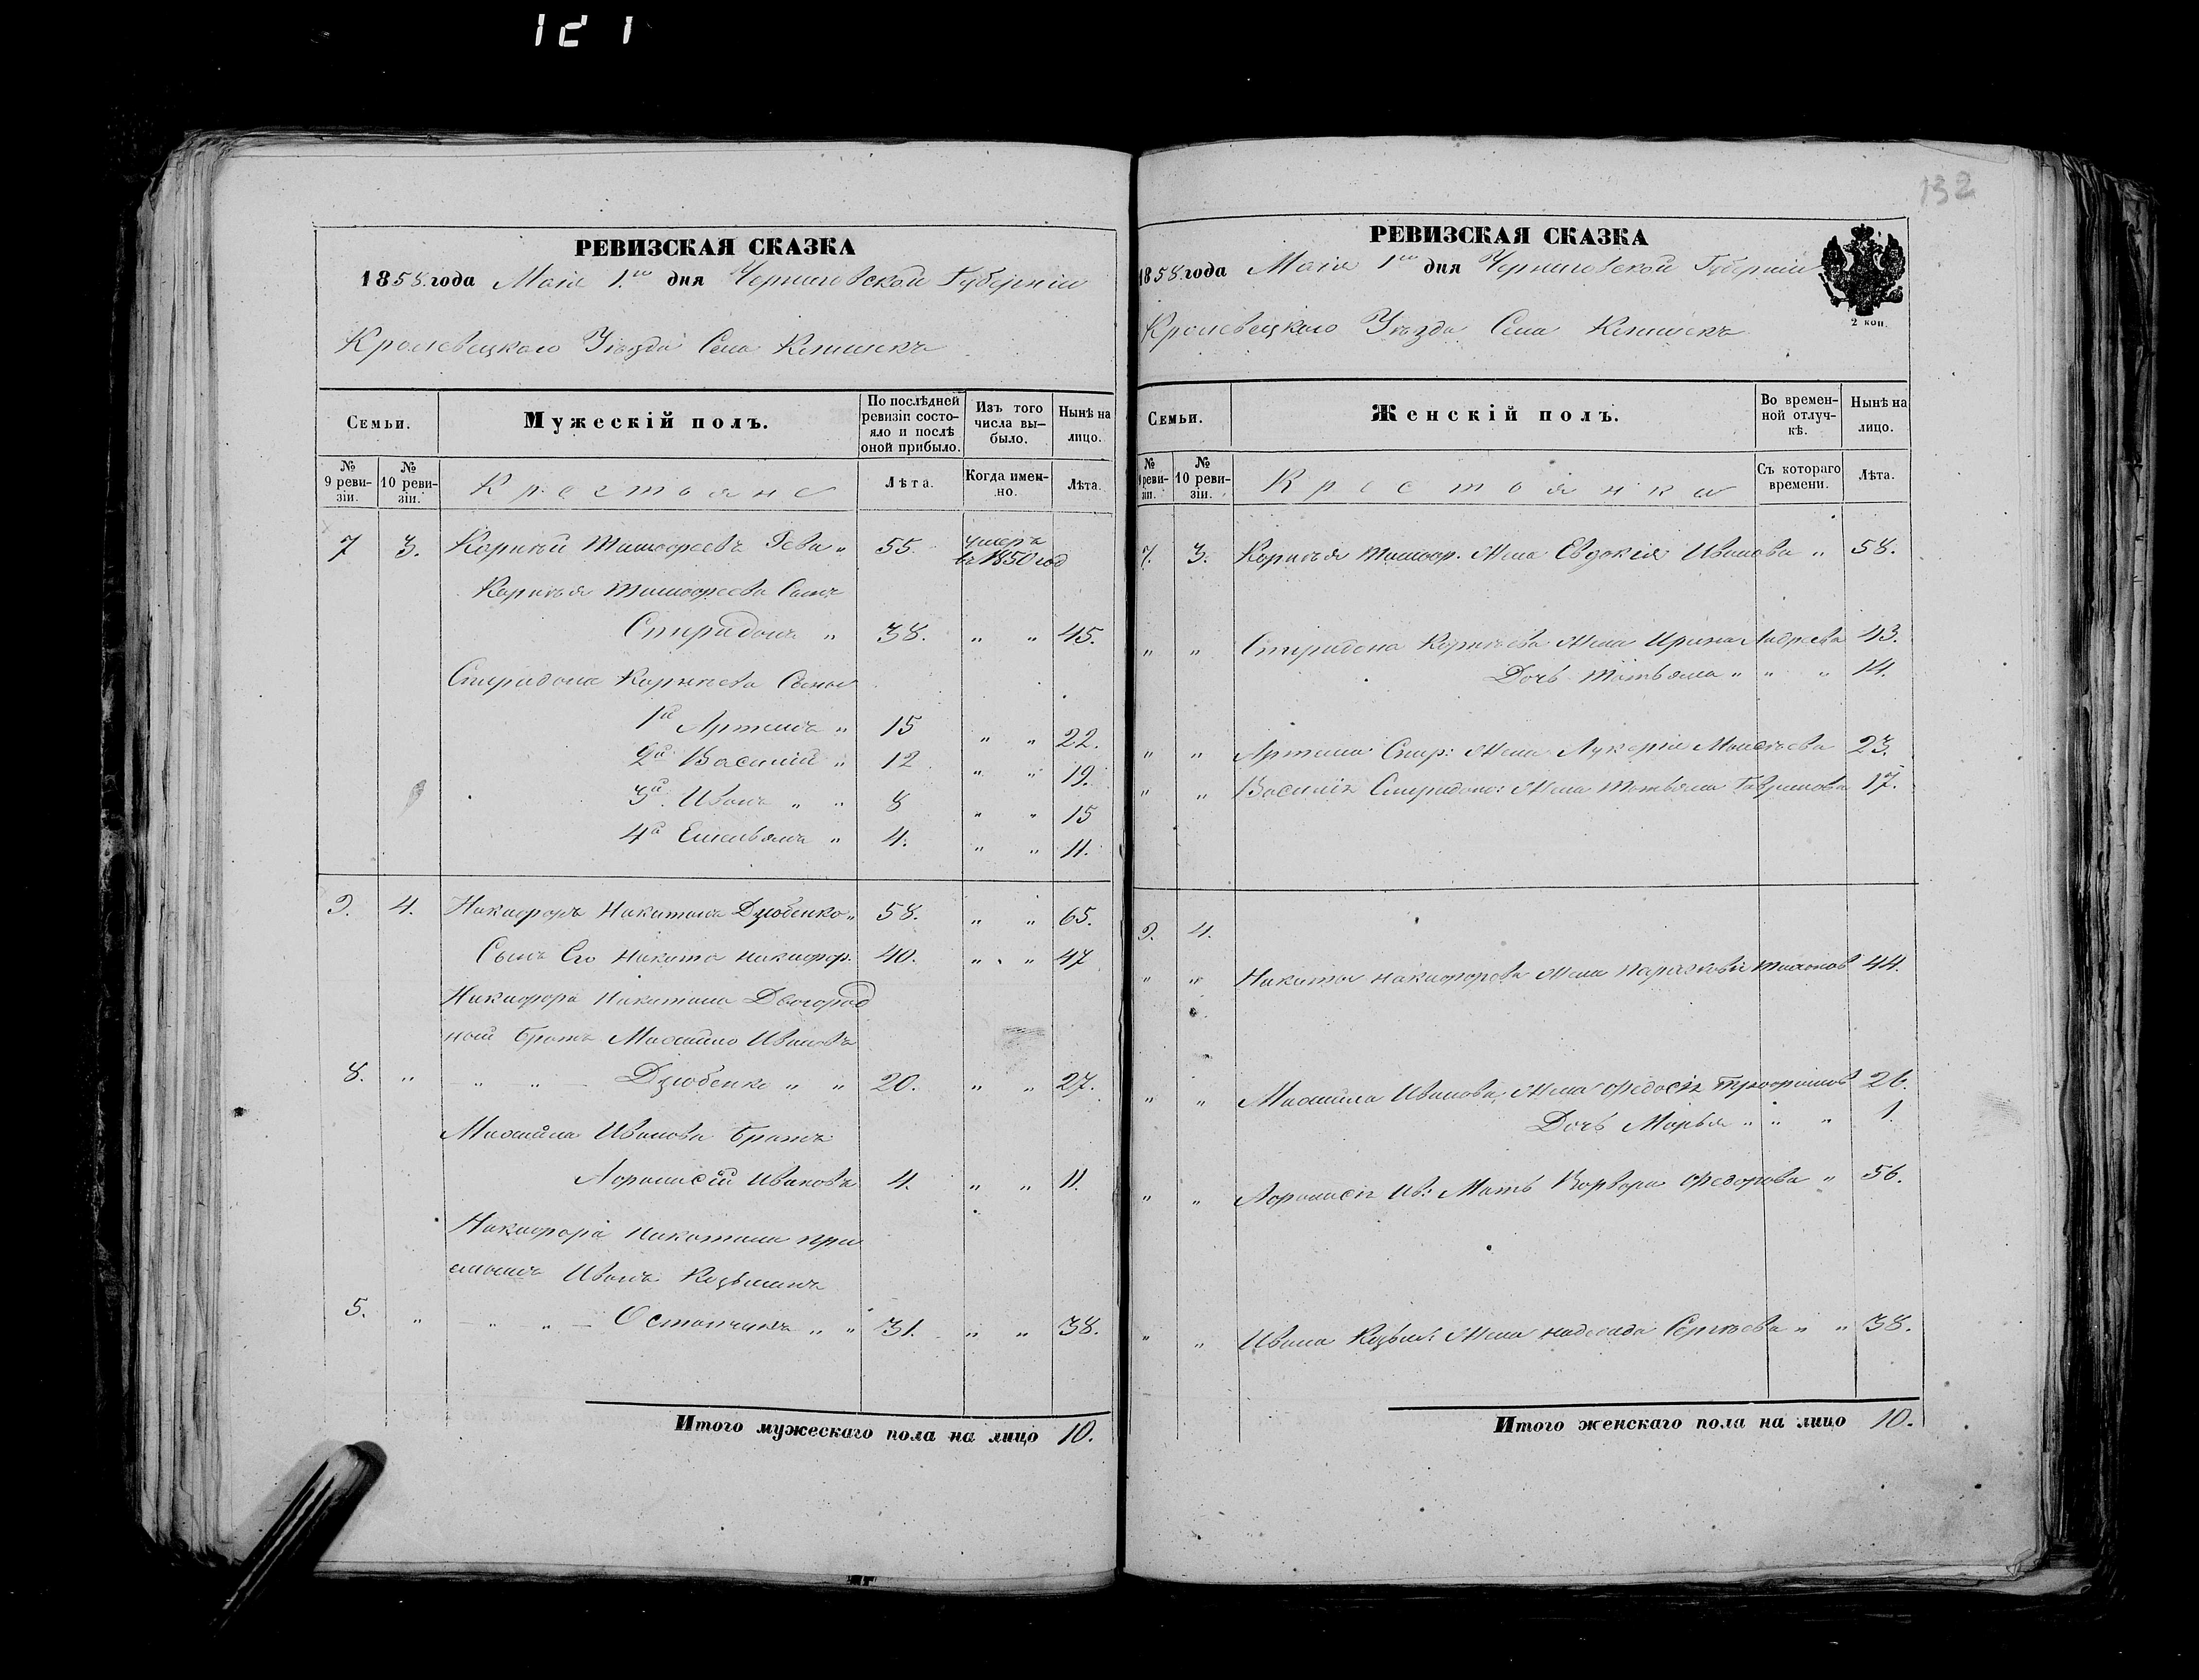 121
132
РЕВИЗСКАЯ СКАЗКА
1858. года Маія 1.го дня Черниговской Губерніи
Кролевецкаго Уѣзда Села
Семьи.
Мужескій полъ.
По послѣдней ревизіи состояло и послѣ оной прибыло.
Изъ того числа выбыло.
Нынѣ на лицо.
№ 9 ревизіи.
№ 10 ревизіи.
Крестьяне
Лѣта.
Когда именно.
Лѣта.
7 3. Корнѣй Тимофеевъ Гева „ 55. умеръ въ 1850 год
Корнѣя Тимофеева Сынъ
Спиридонъ „ 38. „ „ 45.
Спиридона Корнѣева Сыны
1й Артемъ „ 15 „ „ 22.
2й Василій „ 12 „ „ 19.
3й. Иванъ „ „ 8 „ „ 15
4й Емельянъ „ 4. „ „ 11.
9. 4. Никифоръ Никитинъ Дзюбенко „ 58. „ „ 65.
Сынъ Его Никита Никифор. 40. „ „ 47
Никифора Никитина Двоюрод
ный братъ Михайло Ивановъ
8. „ „ „ Дзюбенко „ „ 20. „ „ 27.
Михайла Иванова братъ
Афонасій Ивановъ 4. „ „ 11.
Никифора Никитина при
емышъ Иванъ Козьминъ
5. „ „ „ „ „ 31. „ „ 38.
Итого мужескаго пола на лицо 10.
РЕВИЗСКАЯ СКАЗКА
1858. года Маія 1го дня Черниговской Губерніи
2 коп.
Кролевецкаго Уѣзда Села
Семьи.
Женскій полъ.
Во временной отлучкѣ.
Нынѣ на лицо.
№ 9 ревизіи.
№ 10 ревизіи.
Крестьянки
Съ котораго времени.
Лѣта.
7. 3. Корнѣя Тимоф. Жена Евдокія Иванова „ 58.
„ „ Спиридона Корнѣева Жена Ирина Андреева 43.
Дочь Татьяна „ „ „ 14.
„ „ Артема Спир: Жена Лукерія Моисѣева 23.
„ „ Василія Спиридоно: Жена Татьяна Гаврилова 17.
9. 4.
„ „ Никиты Никифорова Жена Парасковія 44.
„ „ Михайла Иванова Жена Федосія Трофимов 26.
Дочь Марья „ „ „ 1.
„ „ Афонасія Ив: Мать Варвара Федорова „ 56.
„ „ Ивана Козьм: Жена Сергѣева „ „ 38.
Итого женскаго пола на лицо 10.